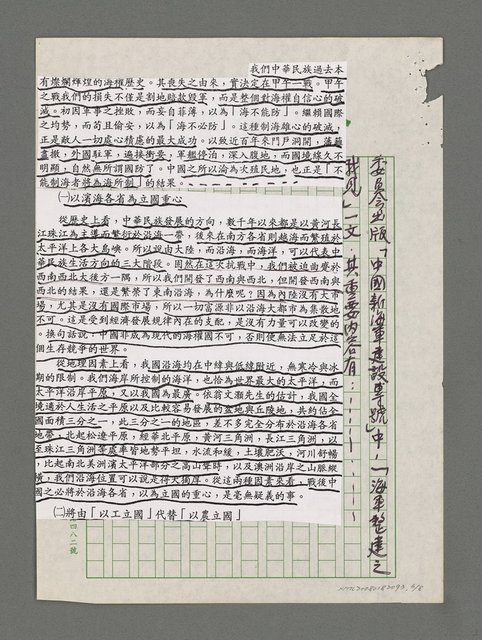 委員會出版「中國新海軍建設專號」中,「海軍整建之
我見」一文,其重要內容有:……
我們中華民族過去本
有燦爛輝煌的海權歷史。其喪失之由來,實決定在甲午一戰。甲午
之戰我們的損失不僅是割地賠款毀軍,而是整個對海權自信心的破
滅。初因軍事之挫敗,而妄自菲薄,以為「海不能防」。繼賴國際
之均勢,而苟且偷安,以為「海不必防」。這種制海雄心的破滅,
正是敵人一切處心積慮的最大成功。以致近百年來門戶洞開,藩籬
盡撤,外國駐軍,遍接衝要,軍艦停泊,深入腹地,而國境線久不
明顯,自然無所謂國防了。中國之所以淪為次殖民地,也正是「不
能制海者將為海所制」的結果。
㈠以濱海各省為立國重心
從歷史上看,中華民族發展的方向,數千年以來都是以黃河長
江珠江為主導而繁衍於沿海一帶,後來在南方各省則越海而繁殖於
太平洋上各大島嶼。所以說由大陸,而沿海,而海洋,可以代表中
華民族生活方向的三大階段。固然在這次抗戰中,我們被迫曲處於
西南西北大後方一隅,所以我們開發了西南與西北,但開發西南與
西北的結果,還是繁榮了東南沿海,為什麼呢?因為內陸沒有大市
場,尤其是沒有國際市場,所以一切富源非以沿海大都市為集散地
不可。這是受到經濟發展規律內在的支配,是沒有力量可以改變的
。換句話說,中國非成為現代的海權國不可,否則便無法立足於這
個生存競爭的世界。
從地理因素上看,我國沿海均在中緯與低緯附近,無寒冷與冰
期的限制。我們海岸所控制的海洋,也恰為世界最大的太平洋,而
太平洋沿岸平原,又以我國為最廣。依翁文灝先生的估計,我國全
境適於人生活之平原以及比較容易發展的盆地與丘陵地,共約佔全
國面積三分之一,此三分之一的地區,差不多完全分布於沿海各省
地帶,北起松遼平原,經華北平原,黃河三角洲,長江三角洲,以
至珠江三角洲,幸處率皆地勢平坦,水流和緩,土壤肥沃,河川舒暢
,比起南北美洲濱太平洋部分之高山聳峙,以及澳洲沿岸之山脈縱
橫,我們沿海位置可以說走得天獨厚。從這兩種因素來看,戰後中
國之必將於沿海各省,以為立國的重心,是毫無疑義的事。
㈡將由「以工立國」代替「以農立國」
四八二號